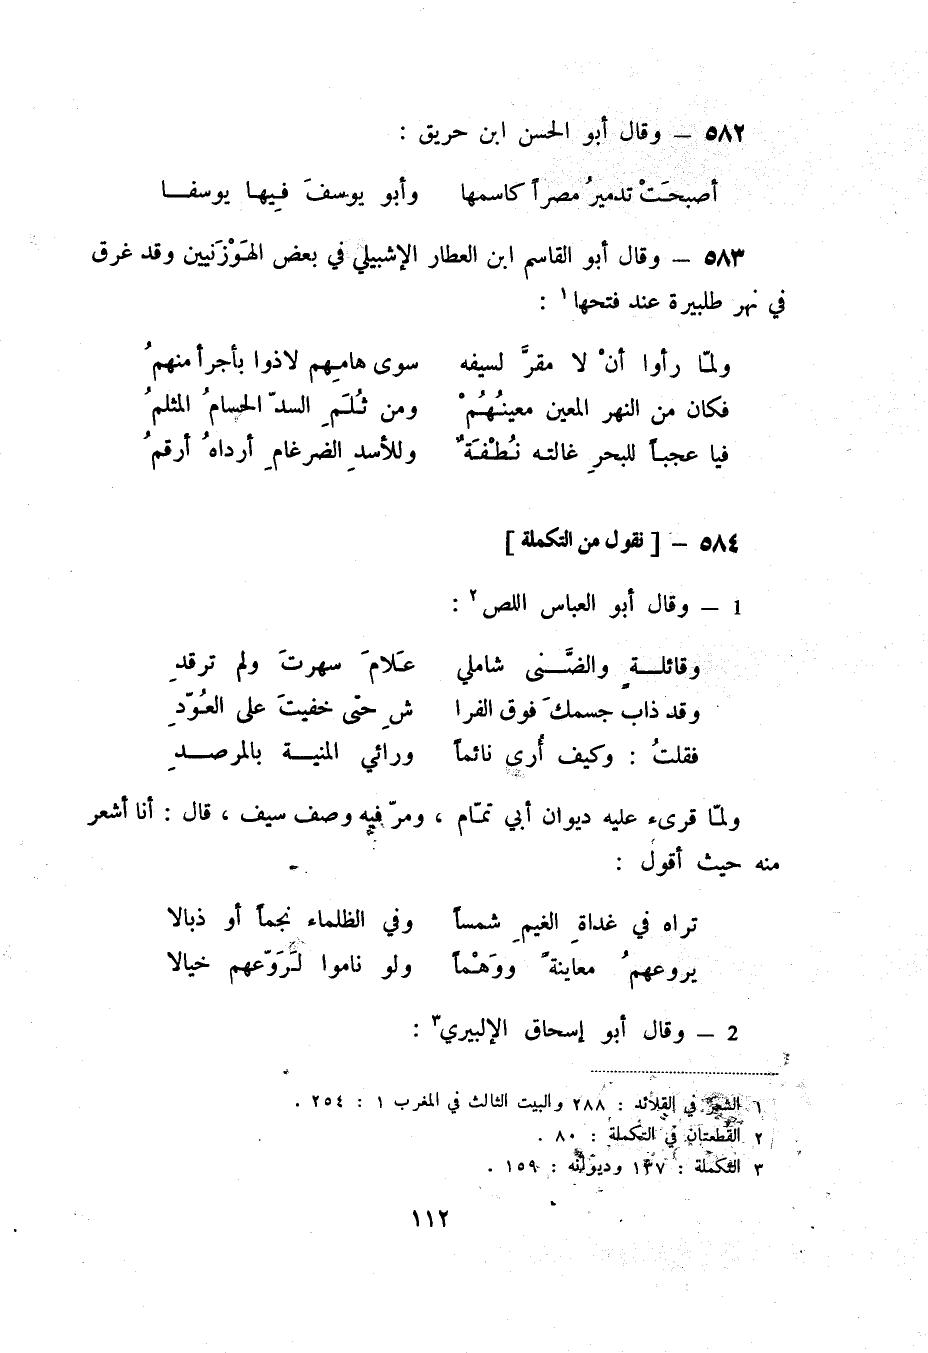 ٥٨٢ – وقال أبو الحسن ابن حريق :
أصبحَتْ تدميرُ مصراً كاسمها وأبو يوسفَ فيها يوسفا
٥٨٣ – وقال أبو القاسم ابن العطار الإشبيلي في بعض الهَوْزَنيين وقد غرق
في نهر طلبيرة عند فتحها١ :
ولمّا رأوا أنْ لا مقرَّ لسيفه سوى هامِهم لاذوا بأجرأ منهمُ
فكان من النهر المعين معينُهُمْ ومن ثُلَمِ السدّ الحسامُ المثلمُ
فيا عجباً للبحرِ غالته نُطْفَةٌ وللأسدِ الضرغامِ أرداهُ أرقمُ
٥٨٤ – [ نقول من التكملة ]
1 – وقال أبو العباس اللص٢ :
وقائلةٍ والضَّنى شاملي عَلامَ سهرتَ ولم ترقدِ
وقد ذاب جسمكَ فوق الفرا شِ حتّى خفيتَ على العُوّدِ
فقلتُ : وكيف أُرى نائماً ورائي المنية بالمرصدِ
ولمّا قرىء عليه ديوان أبي تمّام ، ومرّ فيه وصف سيف ، قال : أنا أشعر
منه حيث أقول :
تراه في غداةِ الغيمِ شمساً وفي الظلماء نجماً أو ذبالا
يروعهمُ معاينةً ووَهْماً ولو ناموا لَرَوّعهم خيالا
2 – وقال أبو إسحاق الإلبيري٣ :
١ الشعر في القلائد : ٢٨٨ والبيت الثالث في المغرب ١ : ٢٥٤ .
٢ القطعتان في التكملة : ٨٠ .
٣ التكملة : ١٣٧ وديوانه : ١٥٩ .
١١٢